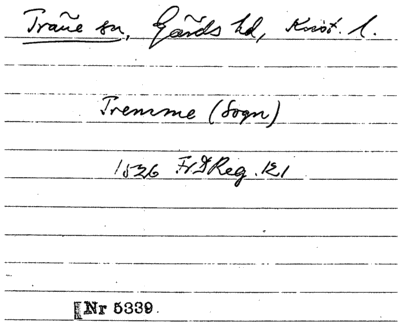 Trañe sn, Gärds hd, Krist. l.
Tremme (Sogn)
1526 FrDReg. 121
Nr 5339.